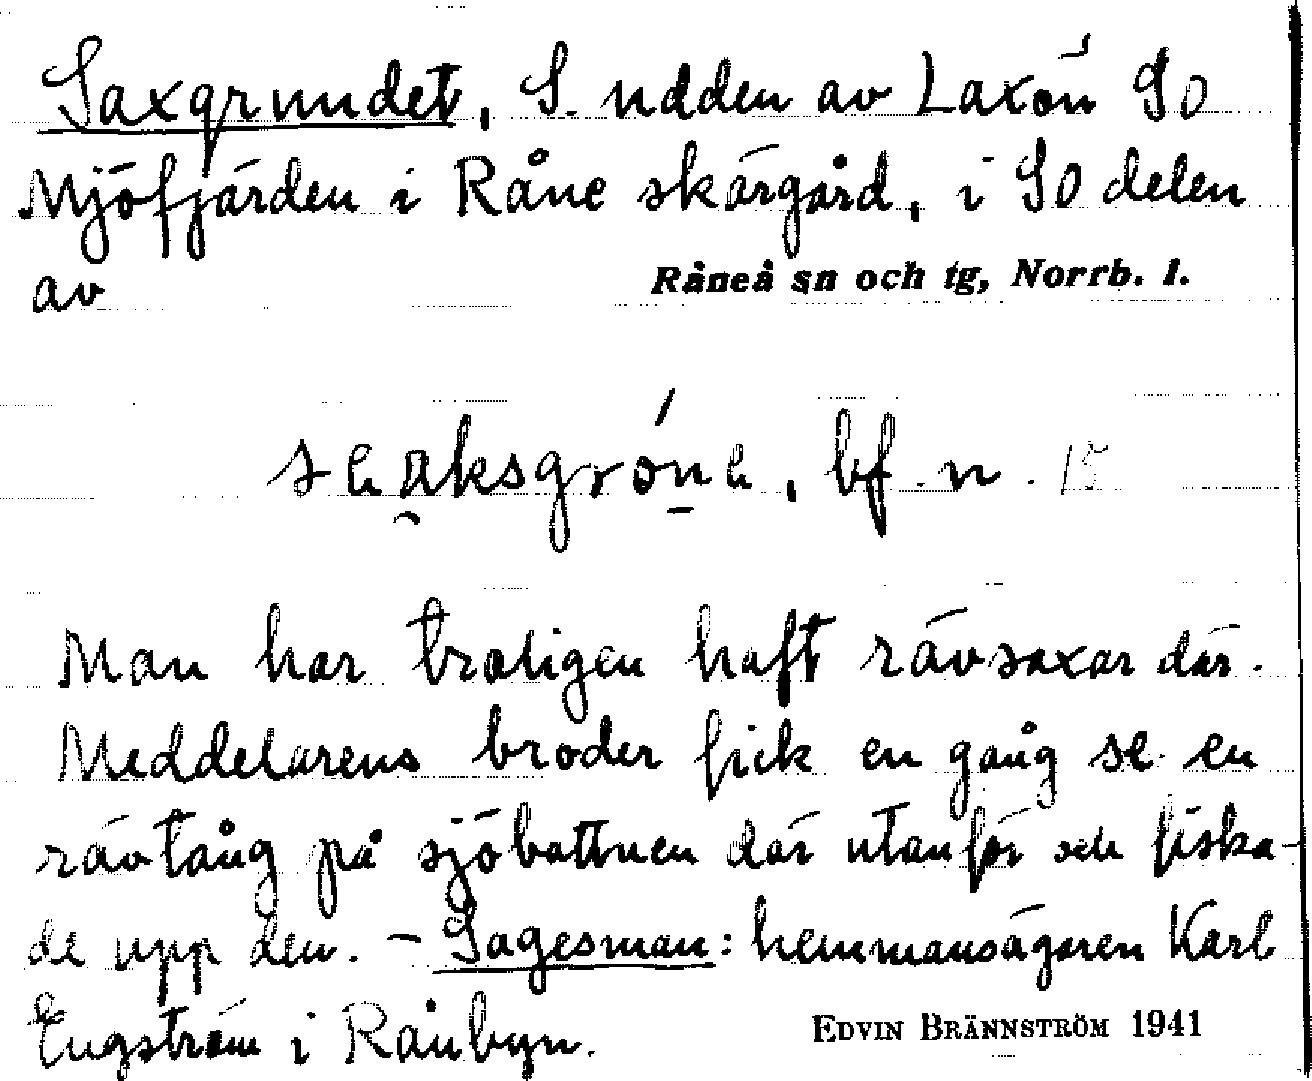 Saxgrundet, S. udden av Laxön SO
Mjöfjärden i Råne skärgård, i SO delen
av Råneå sn och tg, Norrb. l.
bf. n. 15
Man har troligen haft rävsaxar där.
Meddelarens broder fick en gång se en
rävtång på sjöbottnen där utanför och fiska-
de upp den. – Sagesman: hemmansägaren Karl
Engström i Rånbyn. EDVIN BRÄNNSTRÖM 1941